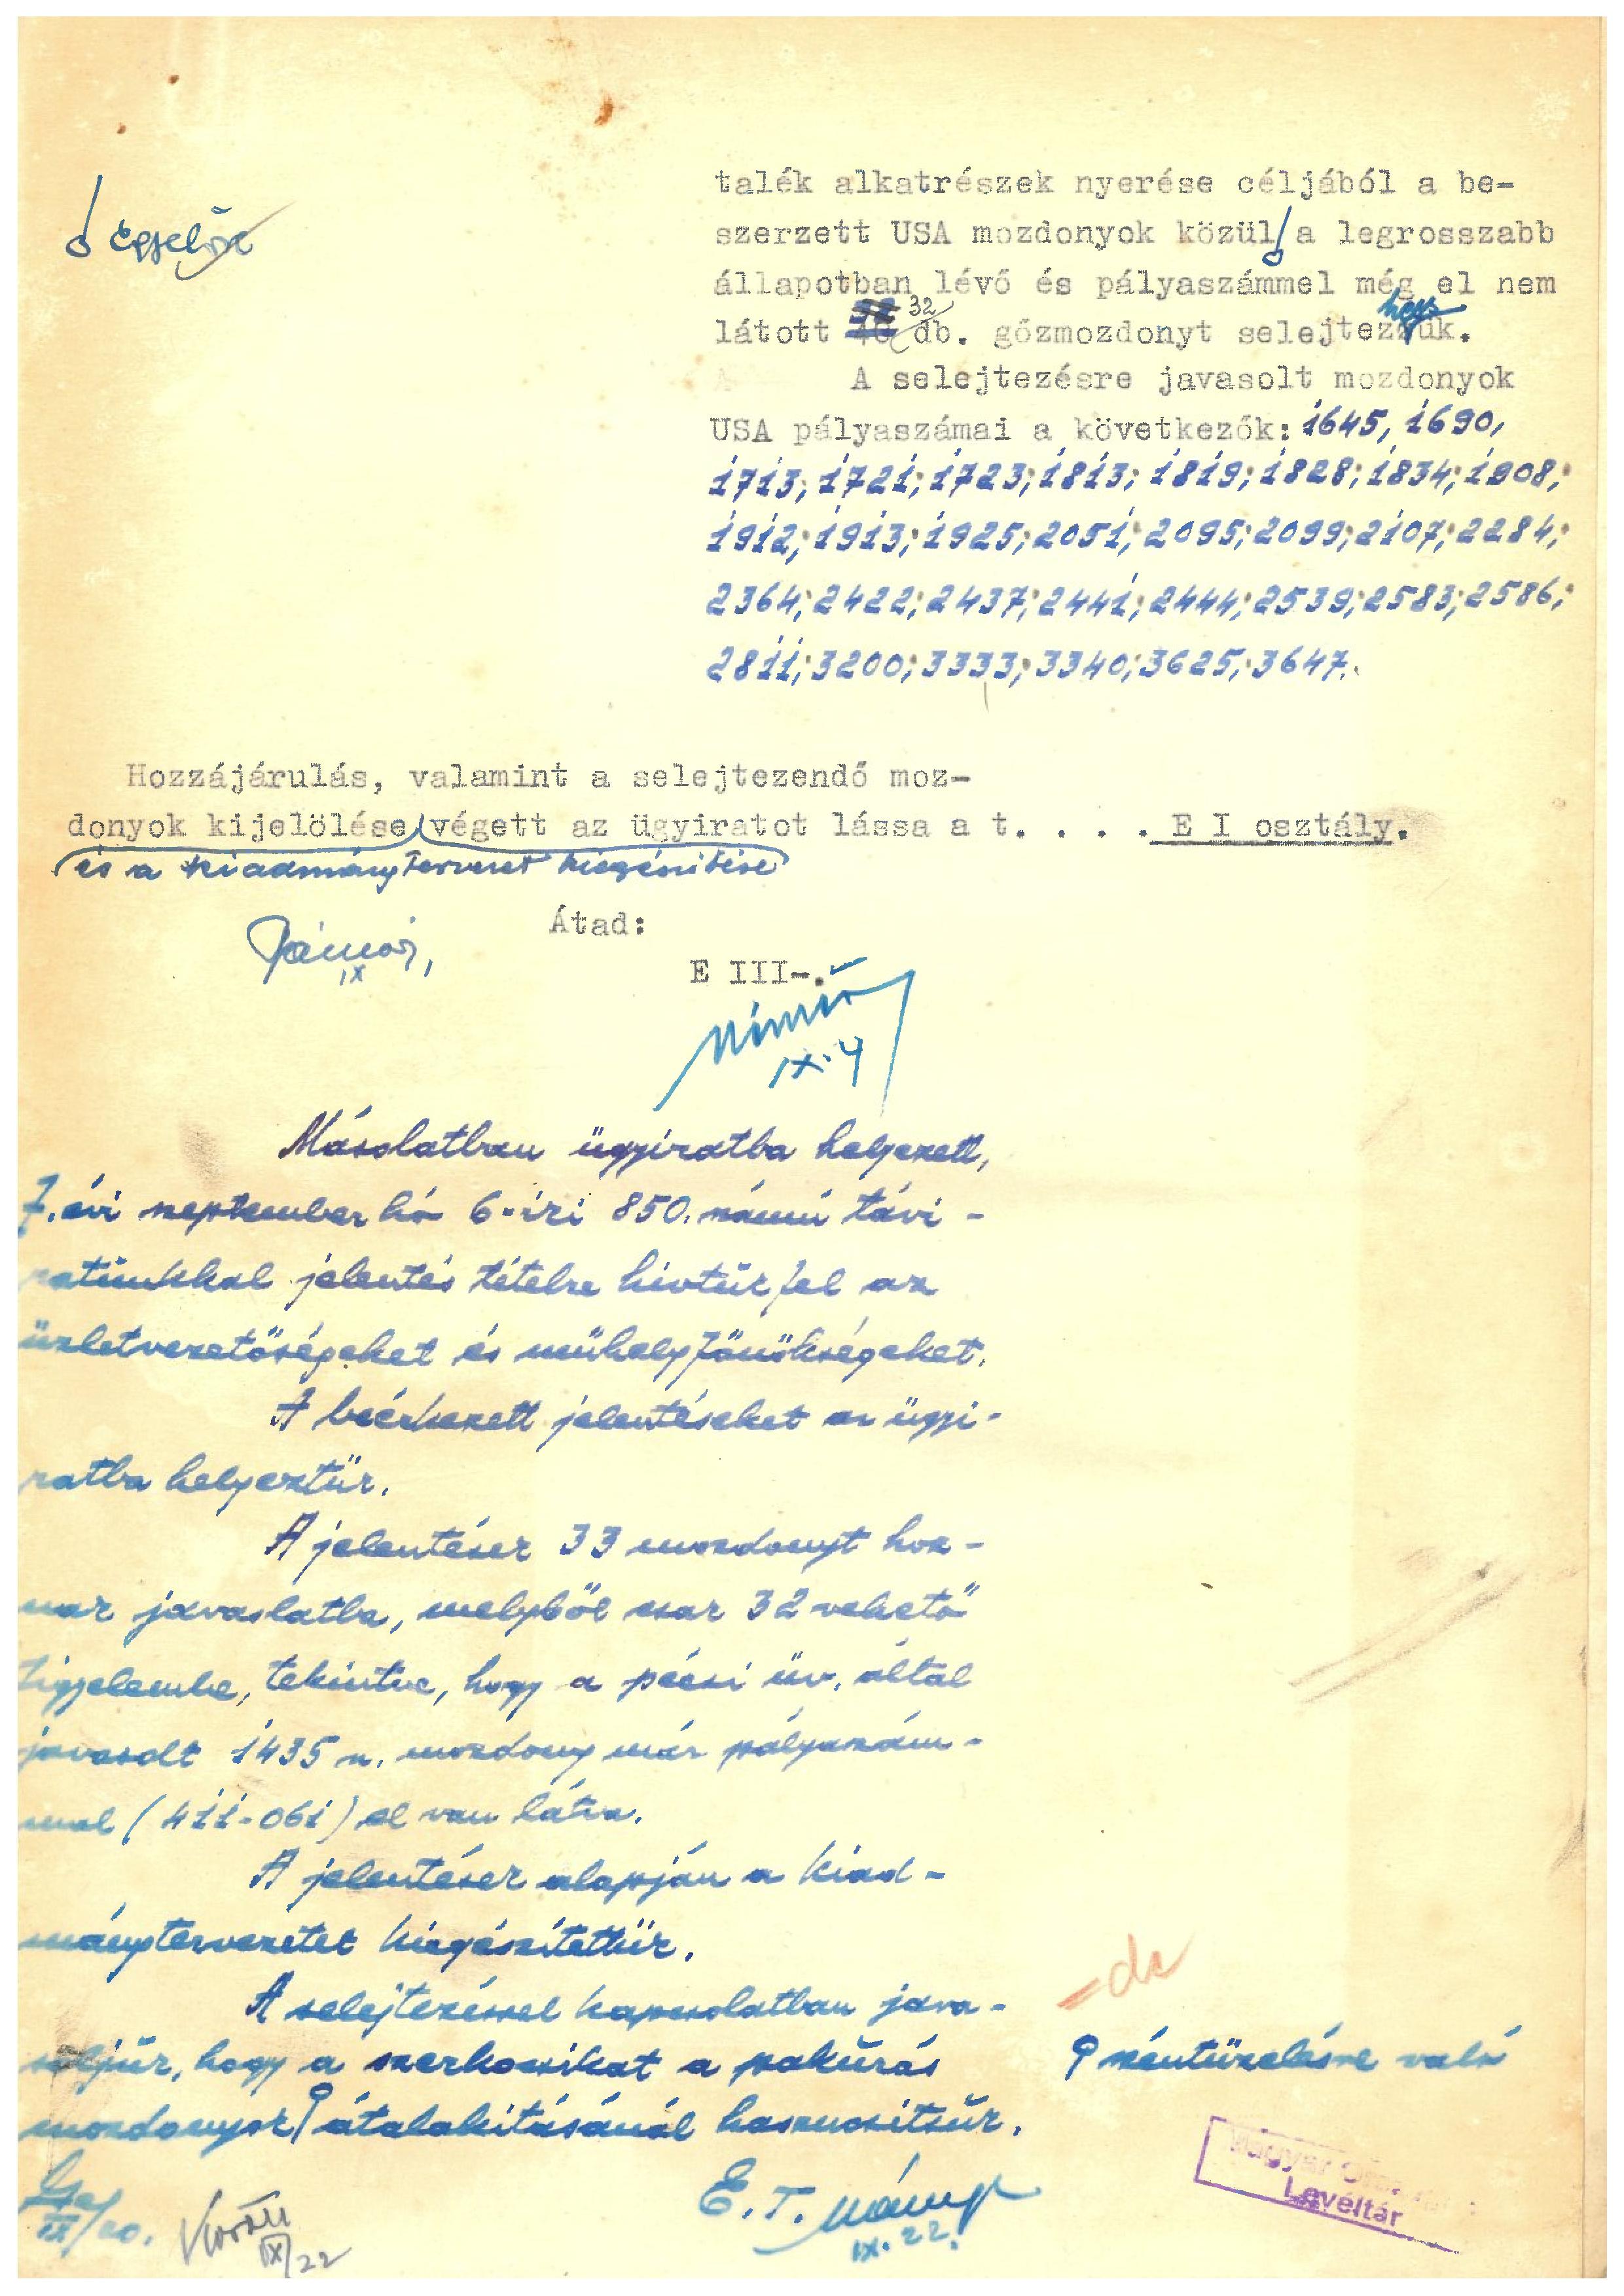 talék alkatrészek nyerése céljából a be-
szerzett USA mozdonyok közül a legrosszabb
egyelőre
állapotban lévő és pályaszámmel még el nem
32
hogy
látott 40 db. gőzmozdonyt selejtezzük.
A selejtezésre javasolt mozdonyok
USA pályaszámai a következők: 1645, 1690,
1713; 1721; 1723; 1813; 1819; 1828; 1834; 1908;
1912; 1913; 1925; 2051; 2095; 2099; 2107; 2284;
2364; 2422; 2437; 2441; 2444; 2539; 2583; 2586;
2811; 3200; 3333; 3340; 3625; 3647.
Hozzájárulás, valamint a selejtezendő moz-
donyok kijelölése végett az ügyiratot lássa a t. . . . E I osztály.
és a kiadmánytervezet kiegészítése
Átad:
IX
E III-.
IX. 4
Másolatban ügyiratba helyezett,
f. évi szeptember hó 6-iki 850. számú távi-
ratunkkal jelentés tételre hívtuk fel az
üzletvezetőségeket és műhelyfőnökségeket.
A beérkezett jelentéseket az ügyi-
ratba helyeztük.
A jelentések 33 mozdonyt hoz-
nak javaslatba, melyből csak 32 vehető
figyelembe, tekintve, hogy a pécsi üv. által
javasolt 1435 sz. mozdony már pályaszám-
mal (411-061) el van látva.
A jelentések alapján a kiad-
mánytervezetet kiegészítettük.
A selejtezéssel kapcsolatban java-
=de
soljuk, hogy a szerkocsikat a pakurás
széntüzelésre való
mozdonyok átalakításánál hasznosítsuk.
IX/20.
IX/22
E. T.
IX. 22.
Magyar
Levéltár